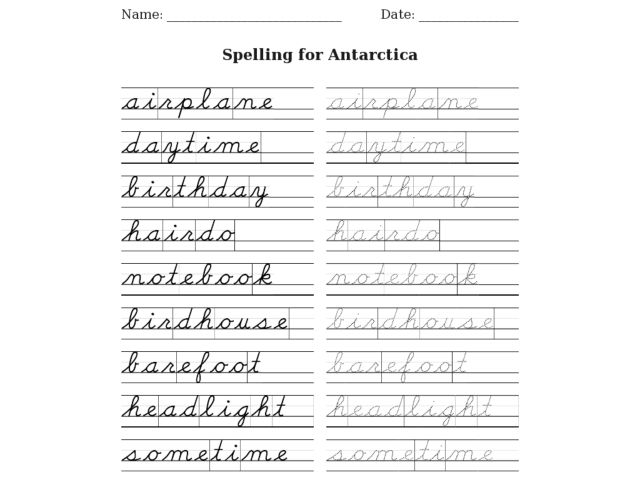 Name: ____________________________ Date: ________________
Spelling for Antarctica
airplane airplane
daytime daytime
birthday birthday
hairdo hairdo
notebook notebook
birdhouse birdhouse
barefoot barefoot
headlight headlight
sometime sometime